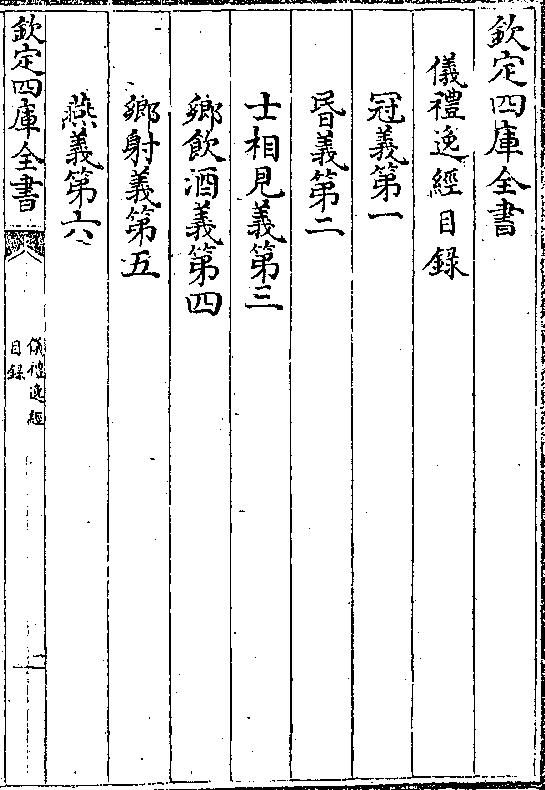 欽定四庫全書
儀禮逸經目録
冠義第一
昏義第二
士相見義第三
鄉飲酒義第四
鄉射義第五
燕義第六
欽定四庫全書
儀禮逸經
目録
一